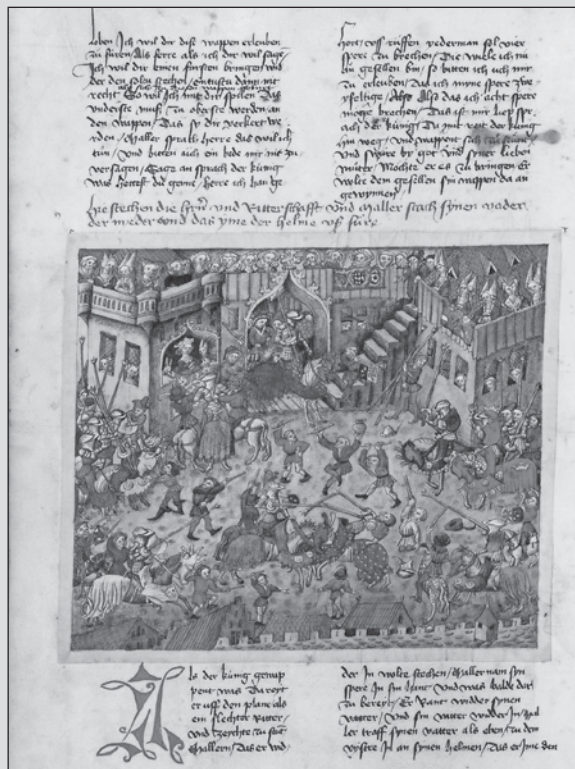 loben Ich wil dir diß wappen erleuben
zu furen / Als ferre als ich dir wil sage
Ich wil dir einen bringen / mid
der den soltu stechen / Entustu dan nit
recht / So wil ich mit dir spilen / das
underste muß / zu oberste werden / an
den wappen / Das so dir verkert we
rden / Maller sprach herre das wil ich
tun / und bitten uch ein bede mir nit zu
versagen / Sage an sprach der kunig
was hettest du gerne / herre ich han ge
hort / uff ruffen yederman sol vier
spere zu brechen / Die wiele ich nu
ein geselle bin / so bitten ich uch mir
zu erleuben / das ich myne spere zwe
yfeltige / Also das ich acht spere
moge brechen / Das ist mir liep spr
ach der kunig / Da mit reit der kunig
hin weg / und wappent sich
und swure by got und syner lieben
muter / Mochte er es zu bringen Er
wolte dem gesellen sin wappen da an
gewynnen /
Hie stechen die hern und Ritterschafft und Maller stach synen vader
der nieder und das yme der helme uß füre
Als der kunig gewap
pent was Da reyt
er uff den plane als
ein slechter Ritter /
und zu
Mallern / das er wid
der In wolte stechen / Maller nam syn
spere In sin hant / und was balde dar
zu bereyt / Er Rant widder synen
vatter / und sin vatter widder In / Mal
ler traff synen vatter als eben / zu dem
In an synen helmen / das er Ime den